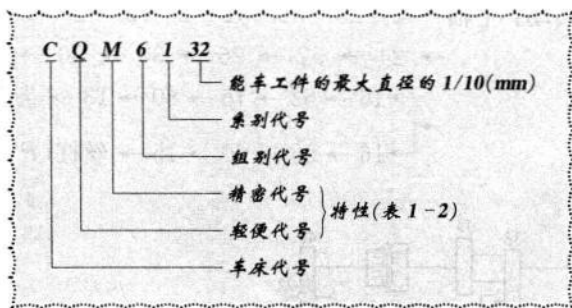 C Q M 6 1 32
能车工件的最大直径的 1/10(mm)
系别代号
组别代号
精密代号
轻便代号
特性(表 1-2)
车床代号